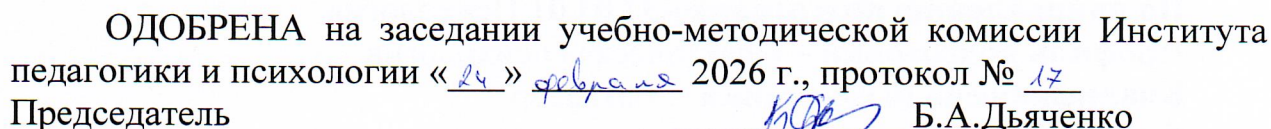 ОДОБРЕНА на заседании учебно-методической комиссии Института
педагогики и психологии «24» февраля 2026 г., протокол № 17
Председатель Б.А.Дьяченко